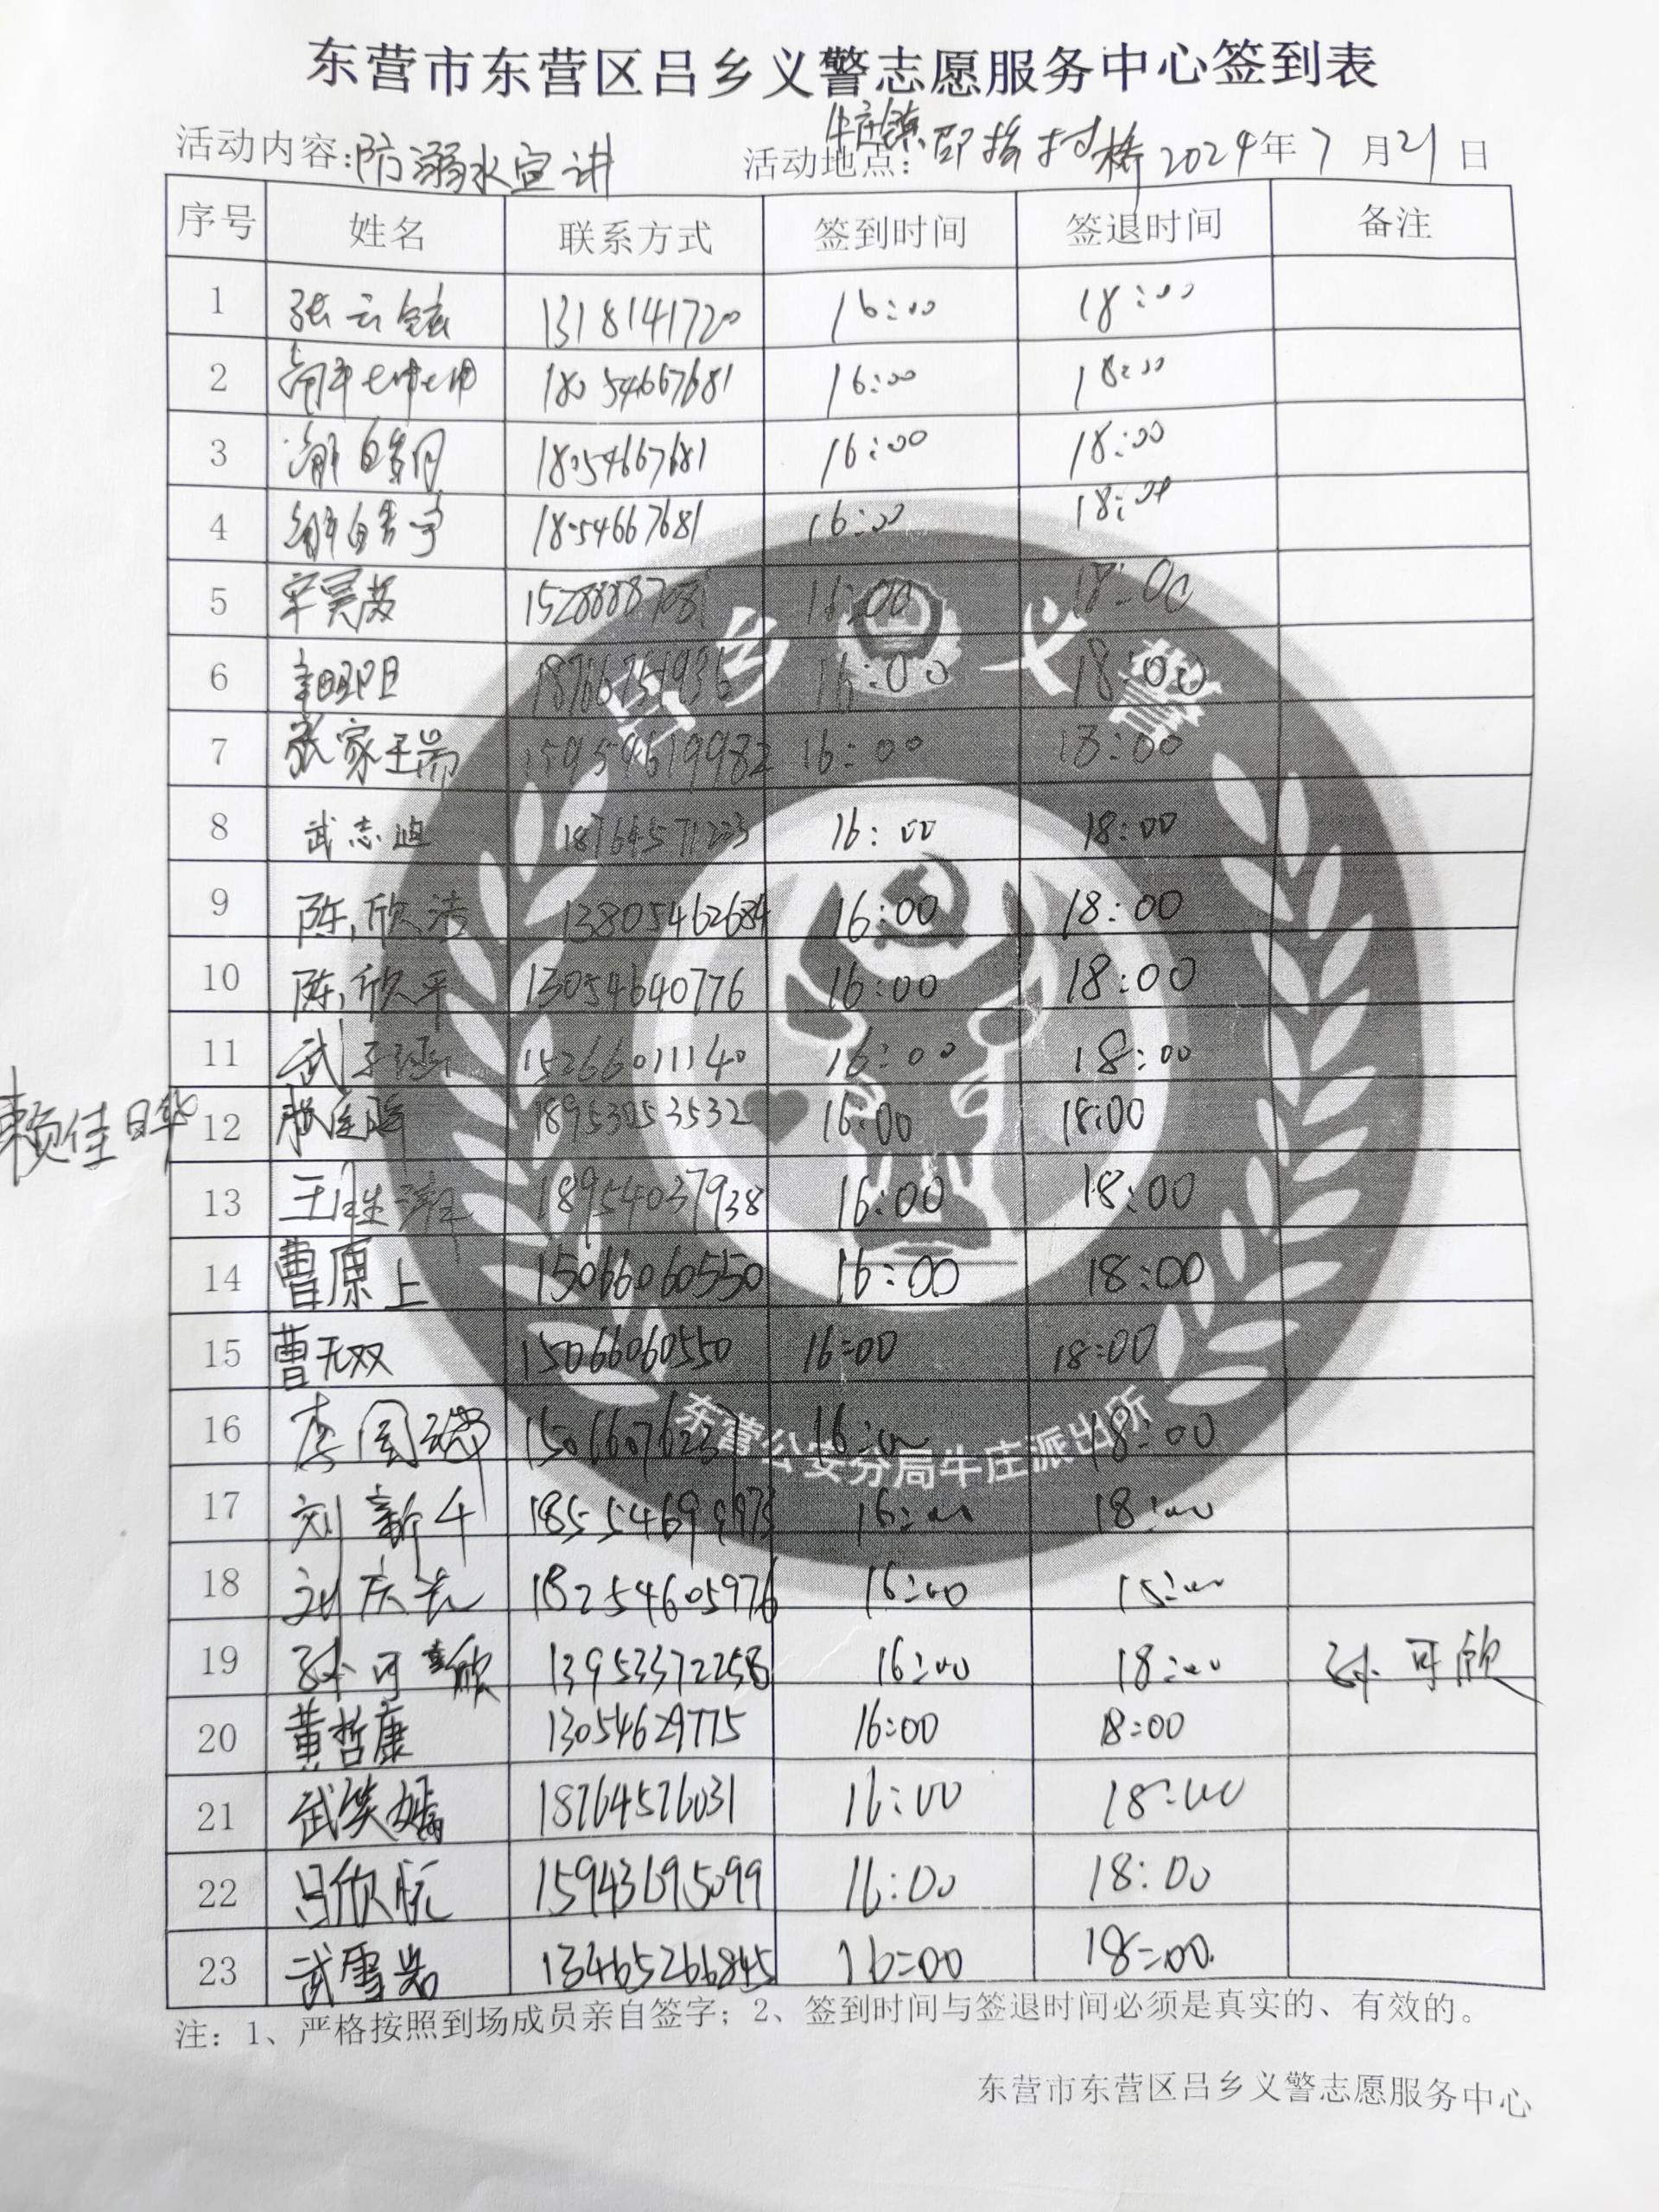 东营市东营区吕乡义警志愿服务中心签到表
牛庄镇
活动内容:防溺水宣讲 活动地点: 村桥 2024年7月21日
序号 姓名 联系方式 签到时间 签退时间 备注
1 张云 1318141720 16:00 18:00
2 18054667681 16:00 18:00
3 18054667681 16:00 18:00
4 18054667681 16:00 18:00
5 宋昊 16:00 18:00
吕乡义警
6 18766751936 16:00 18:00
7 张家瑞 15954619982 16:00 18:00
8 武志迪 18764571223 16:00 18:00
9 陈欣洁 13805462684 16:00 18:00
10 陈欣平 13054640776 16:00 18:00
11 武子涵 15266011140 16:00 18:00
赖佳晔 12 赖佳晔 18953253532 16:00 18:00
13 王 18954037938 16:00 18:00
14 曹原上 15066060550 16:00 18:00
15 曹无双 15066060550 16:00 18:00
16 李国瑞 16:00 18:00
东营公安分局牛庄派出所
17 刘新 16:00 18:00
18 刘庆 18254605976 16:00 18:00
19 孙可欣 13953372258 16:00 18:00 孙可欣
20 黄哲康 13054629775 16:00 18:00
21 武笑嫣 18764576031 16:00 18:00
22 吕欣 15943695099 16:00 18:00
23 武雪 13465266845 16:00 18:00.
注: 1、严格按照到场成员亲自签字; 2、签到时间与签退时间必须是真实的、有效的。
东营市东营区吕乡义警志愿服务中心